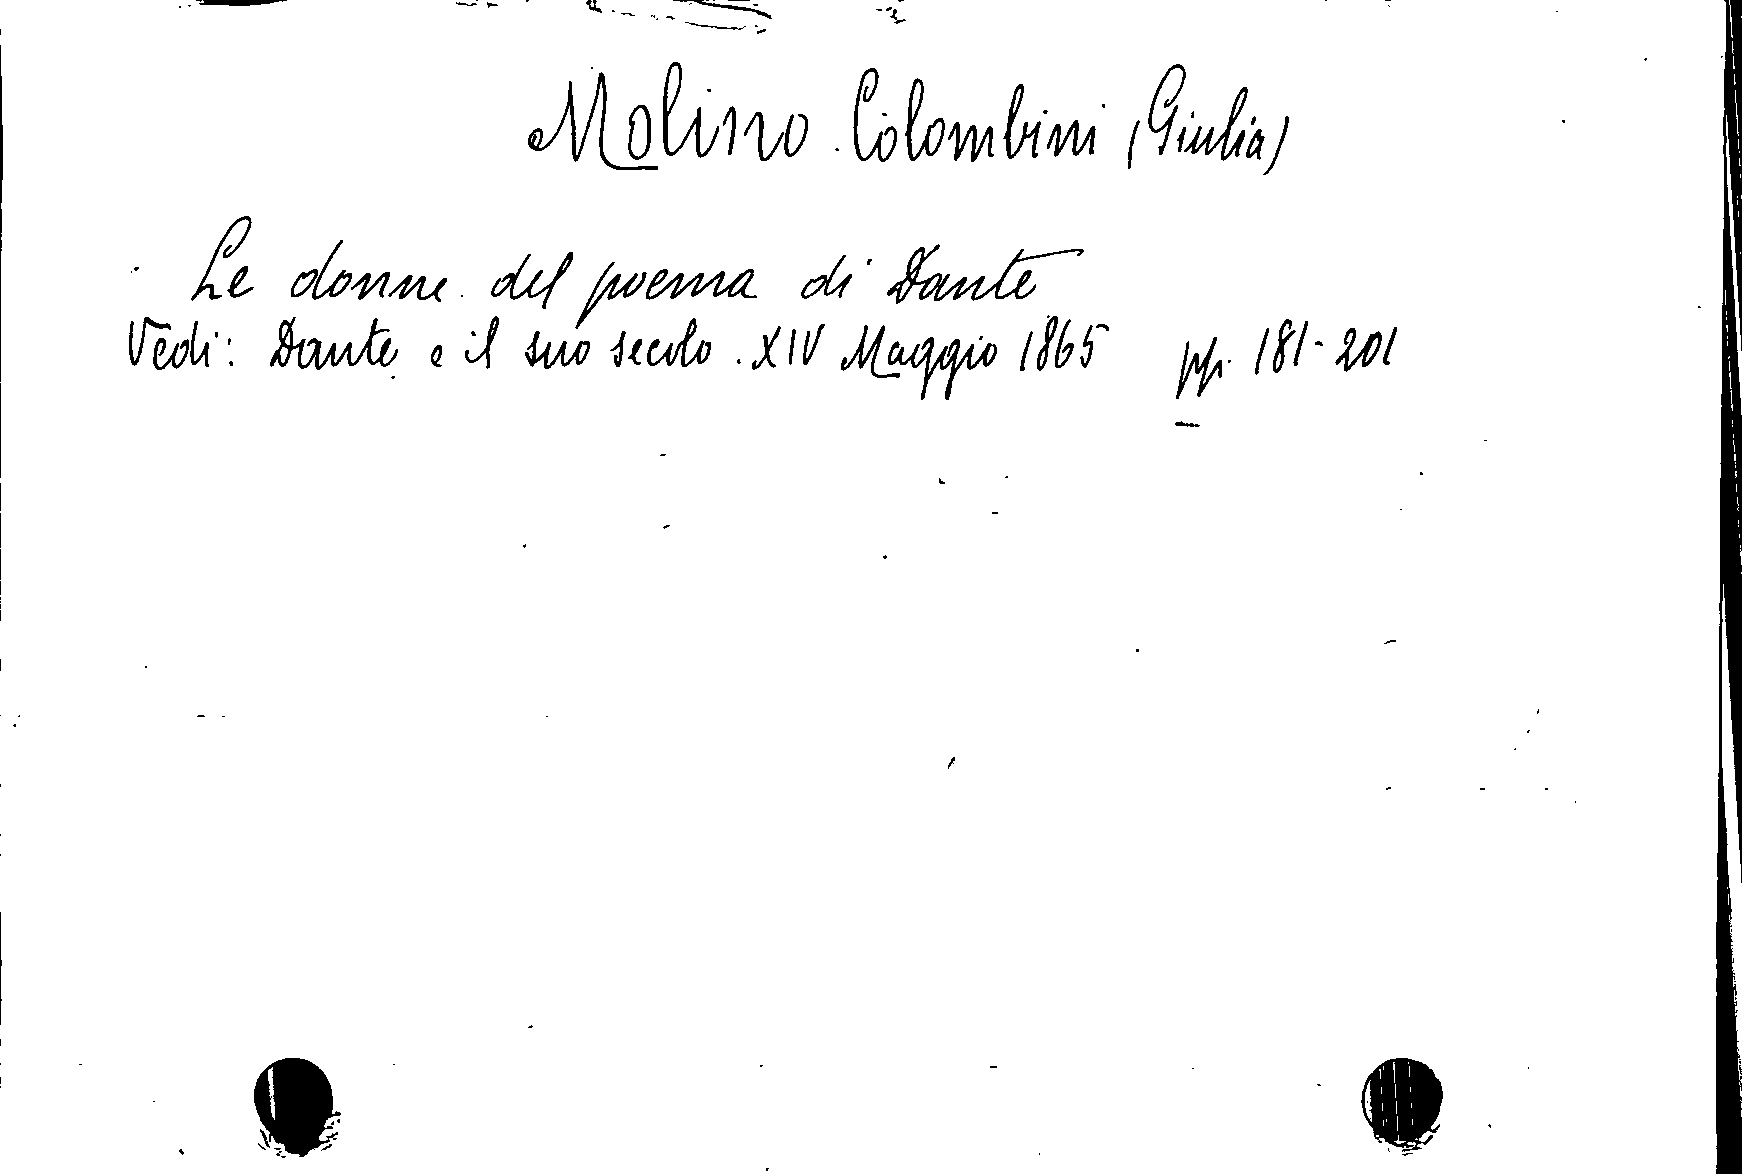 Molino Colombini (Giulia)
Le donne del poema di Dante
Vedi: Dante e il suo secolo. XIV Maggio 1865 pp. 181-201